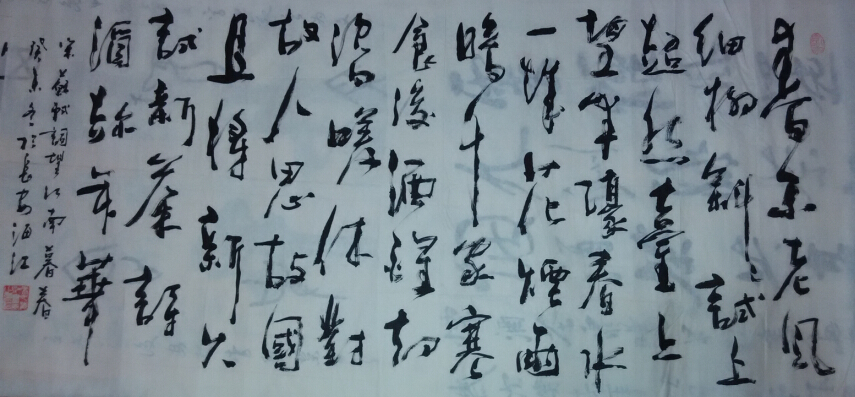 春未老風
細柳斜斜試上
超然臺上
望半壕春水
一城花煙雨
暗千家寒
食後酒醒却
咨嗟休對
故人思故國
且將新火
試新茶詩
酒趁年華
宋蘇軾詞望江南暮春
癸未冬於長安海江